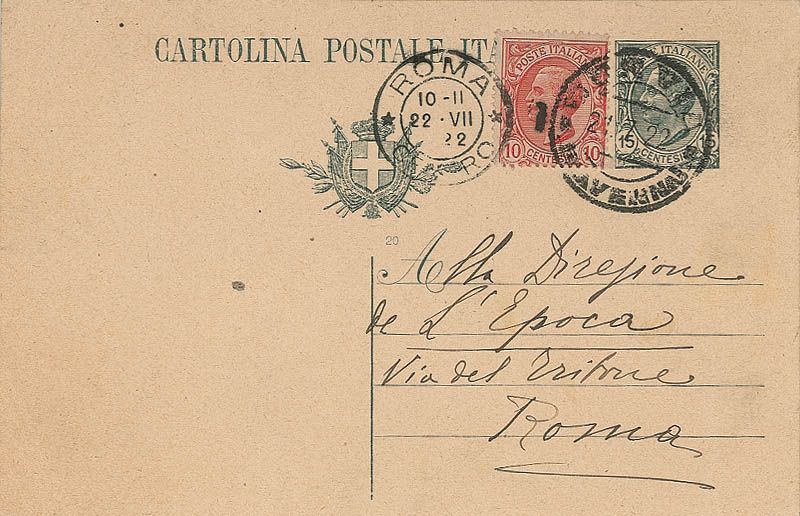 CARTOLINA POSTALE ITA
POSTE ITALIANE
10 CENTESIMI 10
POSTE ITALIANE
15 CENTESIMI
ROMA
10-II
22·VII
22
20
Alla Direzione
de L'Epoca
Via del Tritone
Roma